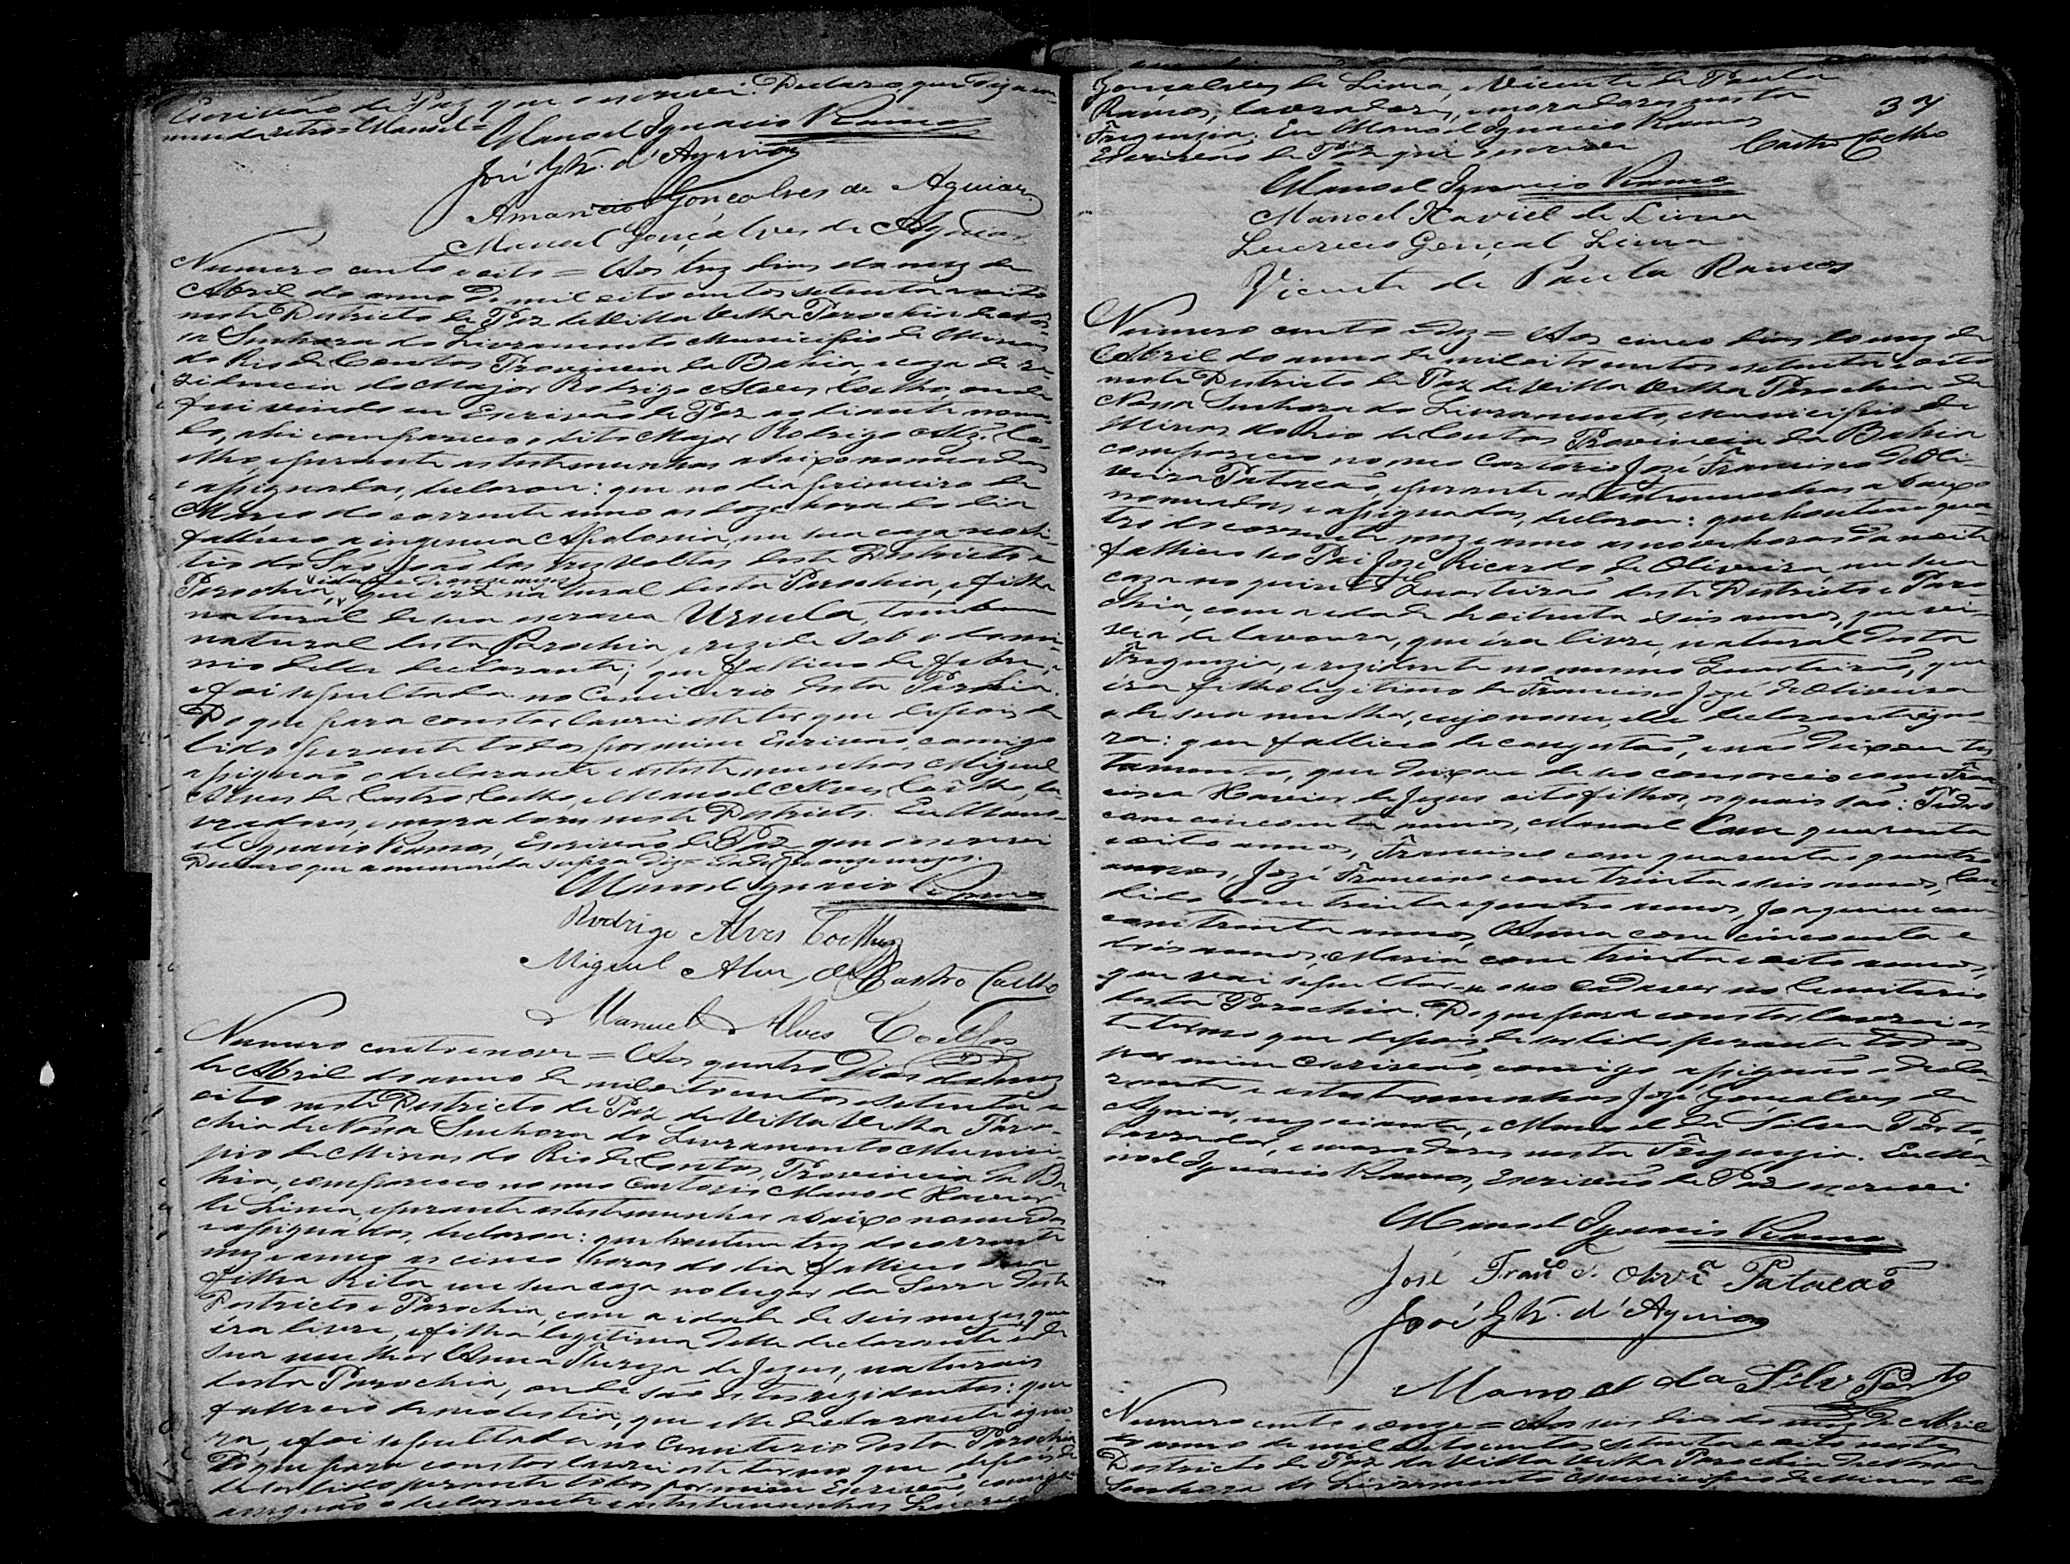 Escrivão de Paz que o escrevi. Declaro que diz a e-
menda retro = Manoel =
Manoel Ignacio Ramos
José Glz. d'Aguiar
Amancio Gonçalves de Aguiar
Manoel Gonçalves de Aguiar
Numero cento e oito = Aos trez dias do mez de
Abril do anno de mil oito centos setenta e oito
neste Districto de Paz de Villa Velha Parochia de Nos-
sa Senhora do Livramento Municipio de Minas
do Rio de Contas Provincia da Bahia, e caza de re-
zidencia do Major Rodrigo Alves Coelho, onde
fui vindo eu Escrivão de Paz ao diante nomea-
do, ahi compareceo o dito Major Rodrigo Alz. Co-
elho, e perante as testemunhas abaixo nomeadas
e assignadas, declarou: que no dia primeiro de
Março do corrente anno as doze horas do dia
falleceo a ingenua Apolonia, em sua caza no si-
tio do São João das trez Voltas deste Districto e
Parochia, idade de onze mezes, que era natural desta Parochia, e filha
natural de sua escrava Ursula, tambem
natural desta Parochia, e rezide sob o domi-
nio delle declarante; que falleceo de febre, e
foi sepultada no Cemiterio desta Parochia.
Do que para constar lavrei este ter que depois de
lido perante todos por mim Escrivão, comigo
assignão o declarante e as testemunhas Miguel
Alves de Castro Coelho, e Manoel Alves Coelho, la-
vradores, e moradores neste Districto. Eu Mano-
el Ignacio Ramos, Escrivão de Paz que o escrevi
Declaro que a emmenda supra diz = idade de onze mezes.
Manoel Ignacio Ramos
Rodrigo Alves Coelho
Miguel Alves de Castro Coelho
Manuel Alves Coelho
Numero cento e nove = Aos quatro dias do mez
de Abril do anno de mil oito centos e setenta e
oito neste Districto de Paz de Villa Velha Paro-
chia de Nossa Senhora do Livramento Munici-
pio de Minas do Rio de Contas, Provincia da Ba-
hia, compareceo no meo Cartorio Manoel Xavier
de Lima, e perante as testemunhas abaixo nomeadas
e assignadas, declarou: que hontem trez do corrente
mez e anno as cinco horas do dia falleceo sua
filha Rita em sua caza no lugar da Serra deste
Districto e Parochia, com a idade de seis mezes, que
éra livre, e filha legitima delle declarante e de
sua mulher Anna Thereza de Jezus, naturais
desta Parochia, onde são rezidentes: que
falleceo de molestia, que elle declarante igno-
ra, e foi sepultada no Cemiterio desta Parochia
Do que para constar lavrei este termo que depois de
de lido perante todos por mim Escrivão, comigo
assignão o declarante e as testemunhas Lucrecio
Gonçalves de Lima, e Vicente de Paula
Ramos, lavradores, e moradores nesta
Freguezia. Eu Manoel Ignacio Ramos
Escrivão de Paz que o escrevi
37
Castro Coelho
Manoel Ignacio Ramos
Manoel Xaviel de Lima
Lucrecio Gonçal Lima
Vicente de Paula Ramos
Numero cento e dez = Aos cinco dias do mez de
Abril do anno de mil oito centos e setenta e oito
neste Districto de Paz de Villa Velha Parochia de
Nossa Senhora do Livramento, Municipio de
Minas do Rio de Contas Provincia da Bahia
compareceo no meo Cartorio José Francisco de Oli-
veira Patacão, e perante as testemunhas abaixo
nomeadas e assignadas, declarou: que hontem qua-
tro do corrente mez e anno as nove horas da noite
falleceo seo Pai José Ricardo de Oliveira, em sua
caza no quinto Quarteirão deste Districto e Paro-
chia, com a idade de oitenta e seis annos, que vi-
via de lavoura, que éra livre, natural desta
Freguezia, e rezidente no mesmo Quarteirão, que
éra filho legitimo de Francisco José de Oliveira
e de sua mulher, cujo nome, elle declarante igno-
ra: que falleceo de congestão, e não deixou tes-
tamento, que deixou de seo consorcio com Fran-
cisca Xavier de Jezus oito filhos, os quais são: Pedro
com cincoenta annos, Manoel com quarenta
e oito annos, Francisco com quarenta e quatro
annos, José Francisco com trinta e seis annos, Can-
dido com trinta e quatro annos, Joaquim com
com trinta annos, Anna com cincoenta e
dois annos, Maria com trinta e oito annos,
que vai sepultar-se o seo cadaver no Cemiterio
desta Parochia. Do que para constar lavrei es-
te termo que depois de lido perante todos
por mim Escrivão, comigo assignão o decla-
rante e as testemunhas José Gonçalves de
Aguiar, negociante, e Manoel da Silva Porto,
lavrador, e moradores nesta Freguezia. Eu Ma-
noel Ignacio Ramos, Escrivão de Paz o escrevi
Manoel Ignacio Ramos
José Franco. d. Olivra Patacão
José Glz. d'Aguiar
Manoel da Silv Porto
Numero cento e onze = Aos seis dias do mez de Abril
do anno de mil oito centos setenta e oito neste
Districto de Paz da Villa Velha Parochia de Nossa
Senhora do Livramento Municipio de Minas do